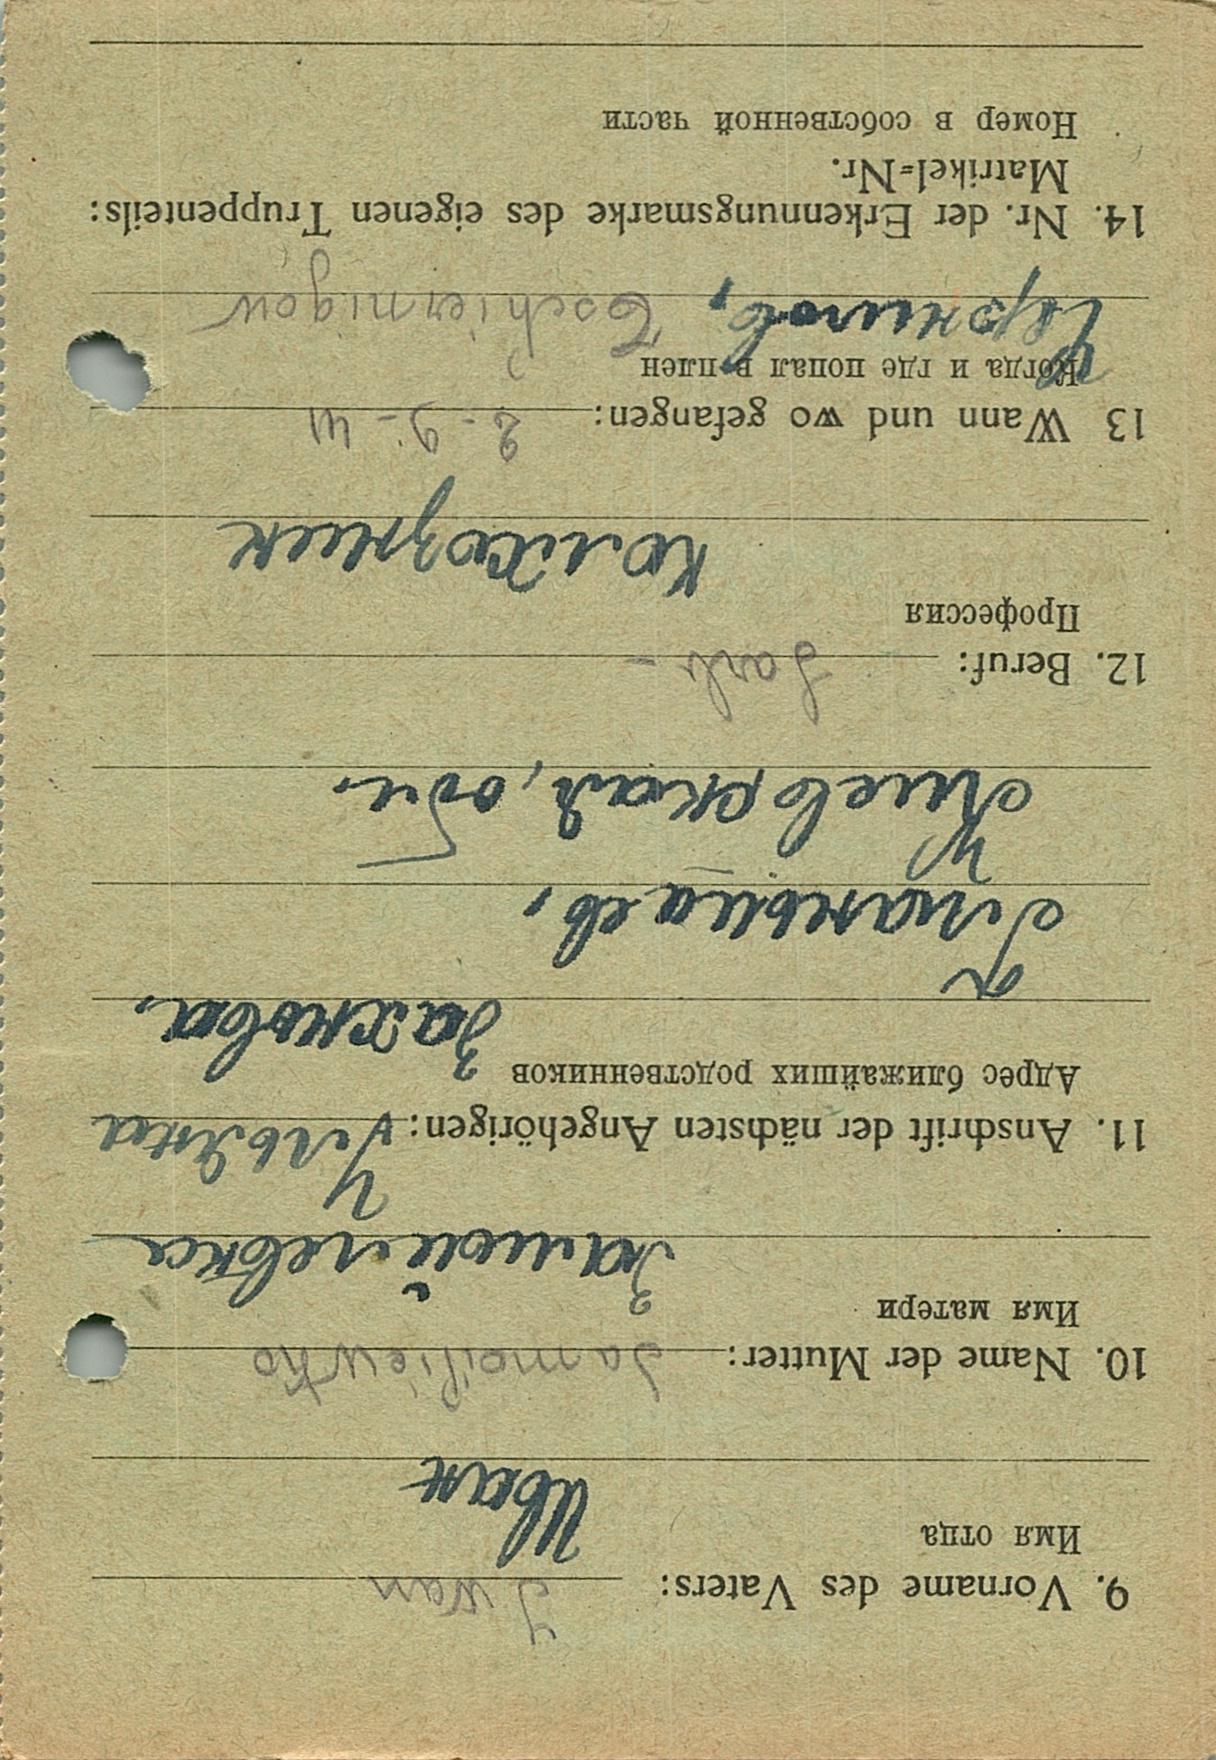 9. Vorname des Vaters: Iwan
Имя отца
Иван
10. Name der Mutter: Samoiliewko
Имя матери
Замойлевка
11. Anschrift der nächsten Angehörigen: Ульяна
Адрес ближайших родственников
Захкова.
р
Киевская, обл.
12. Beruf:
Профессия
колхозник
13 Wann und wo gefangen: 2-9-41
Когда и где попал в плен
Чернигов, Tschiernigow
14. Nr. der Erkennungsmarke des eigenen Truppenteils:
Matrikel=Nr.
Номер в собственной части